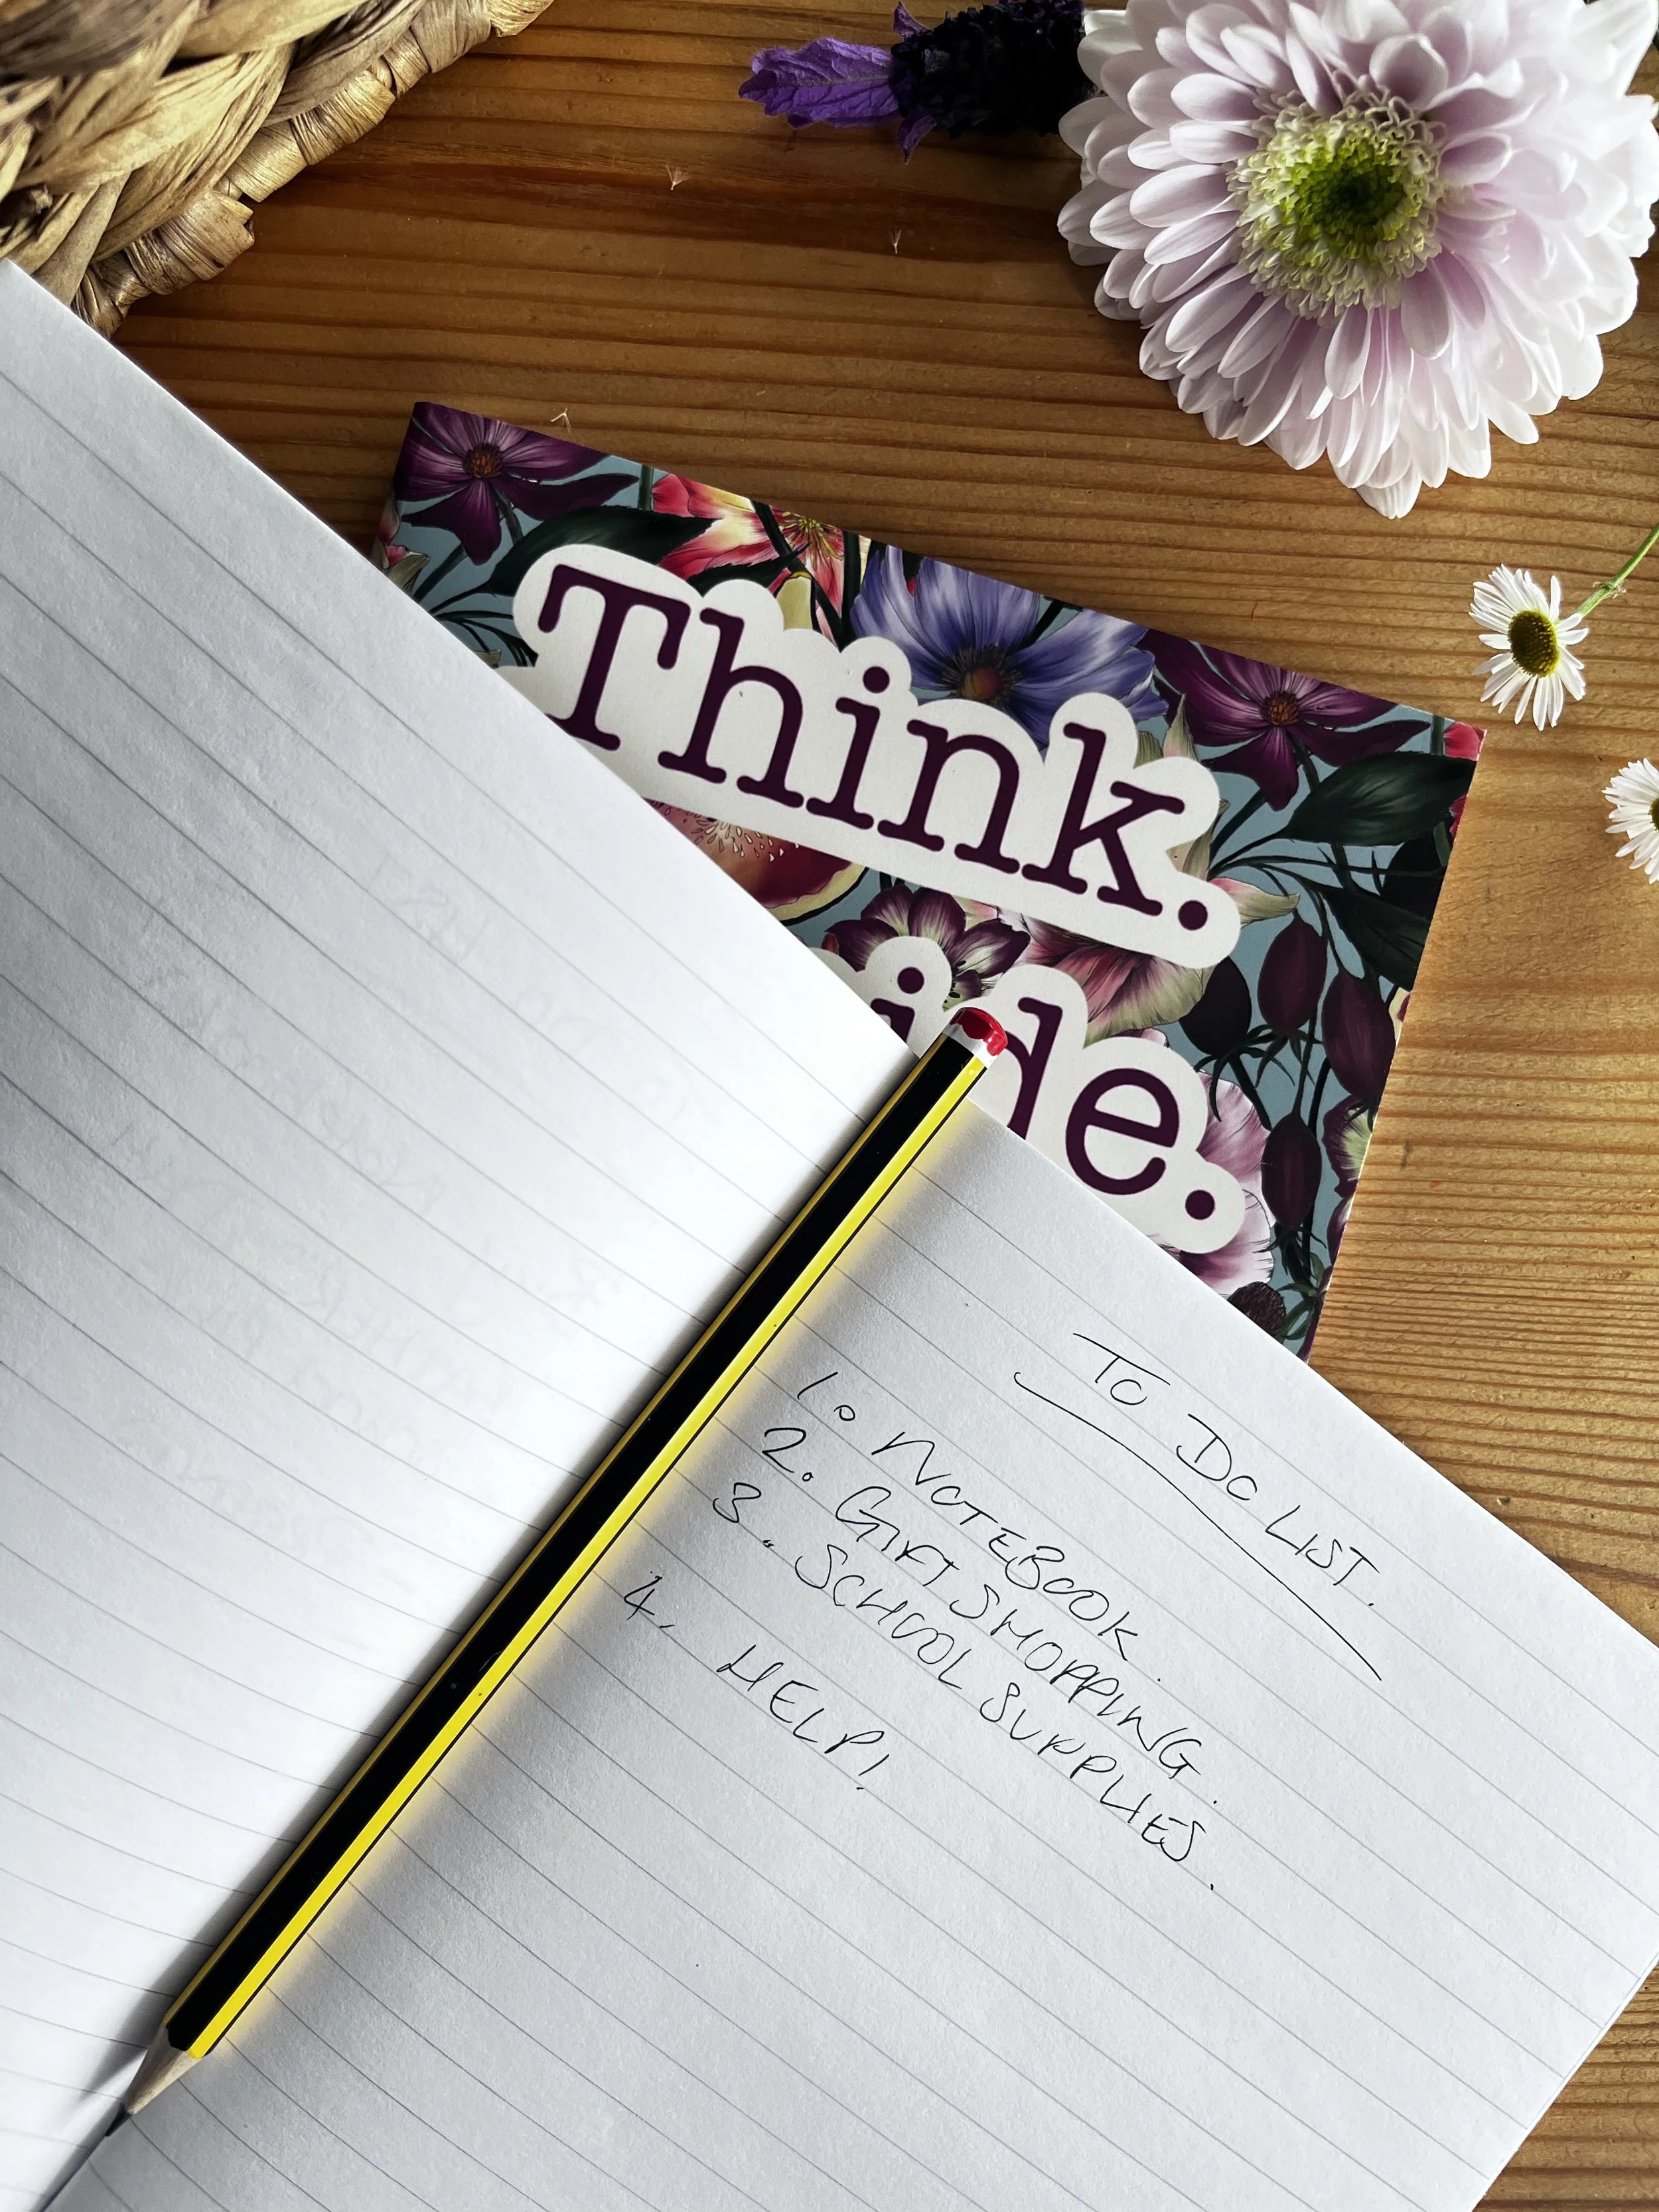 Think.
ide.
TO DO LIST.
1. NOTEBOOK
2. GIFT SHOPPING
3. SCHOOL SUPPLIES.
4. HELP!